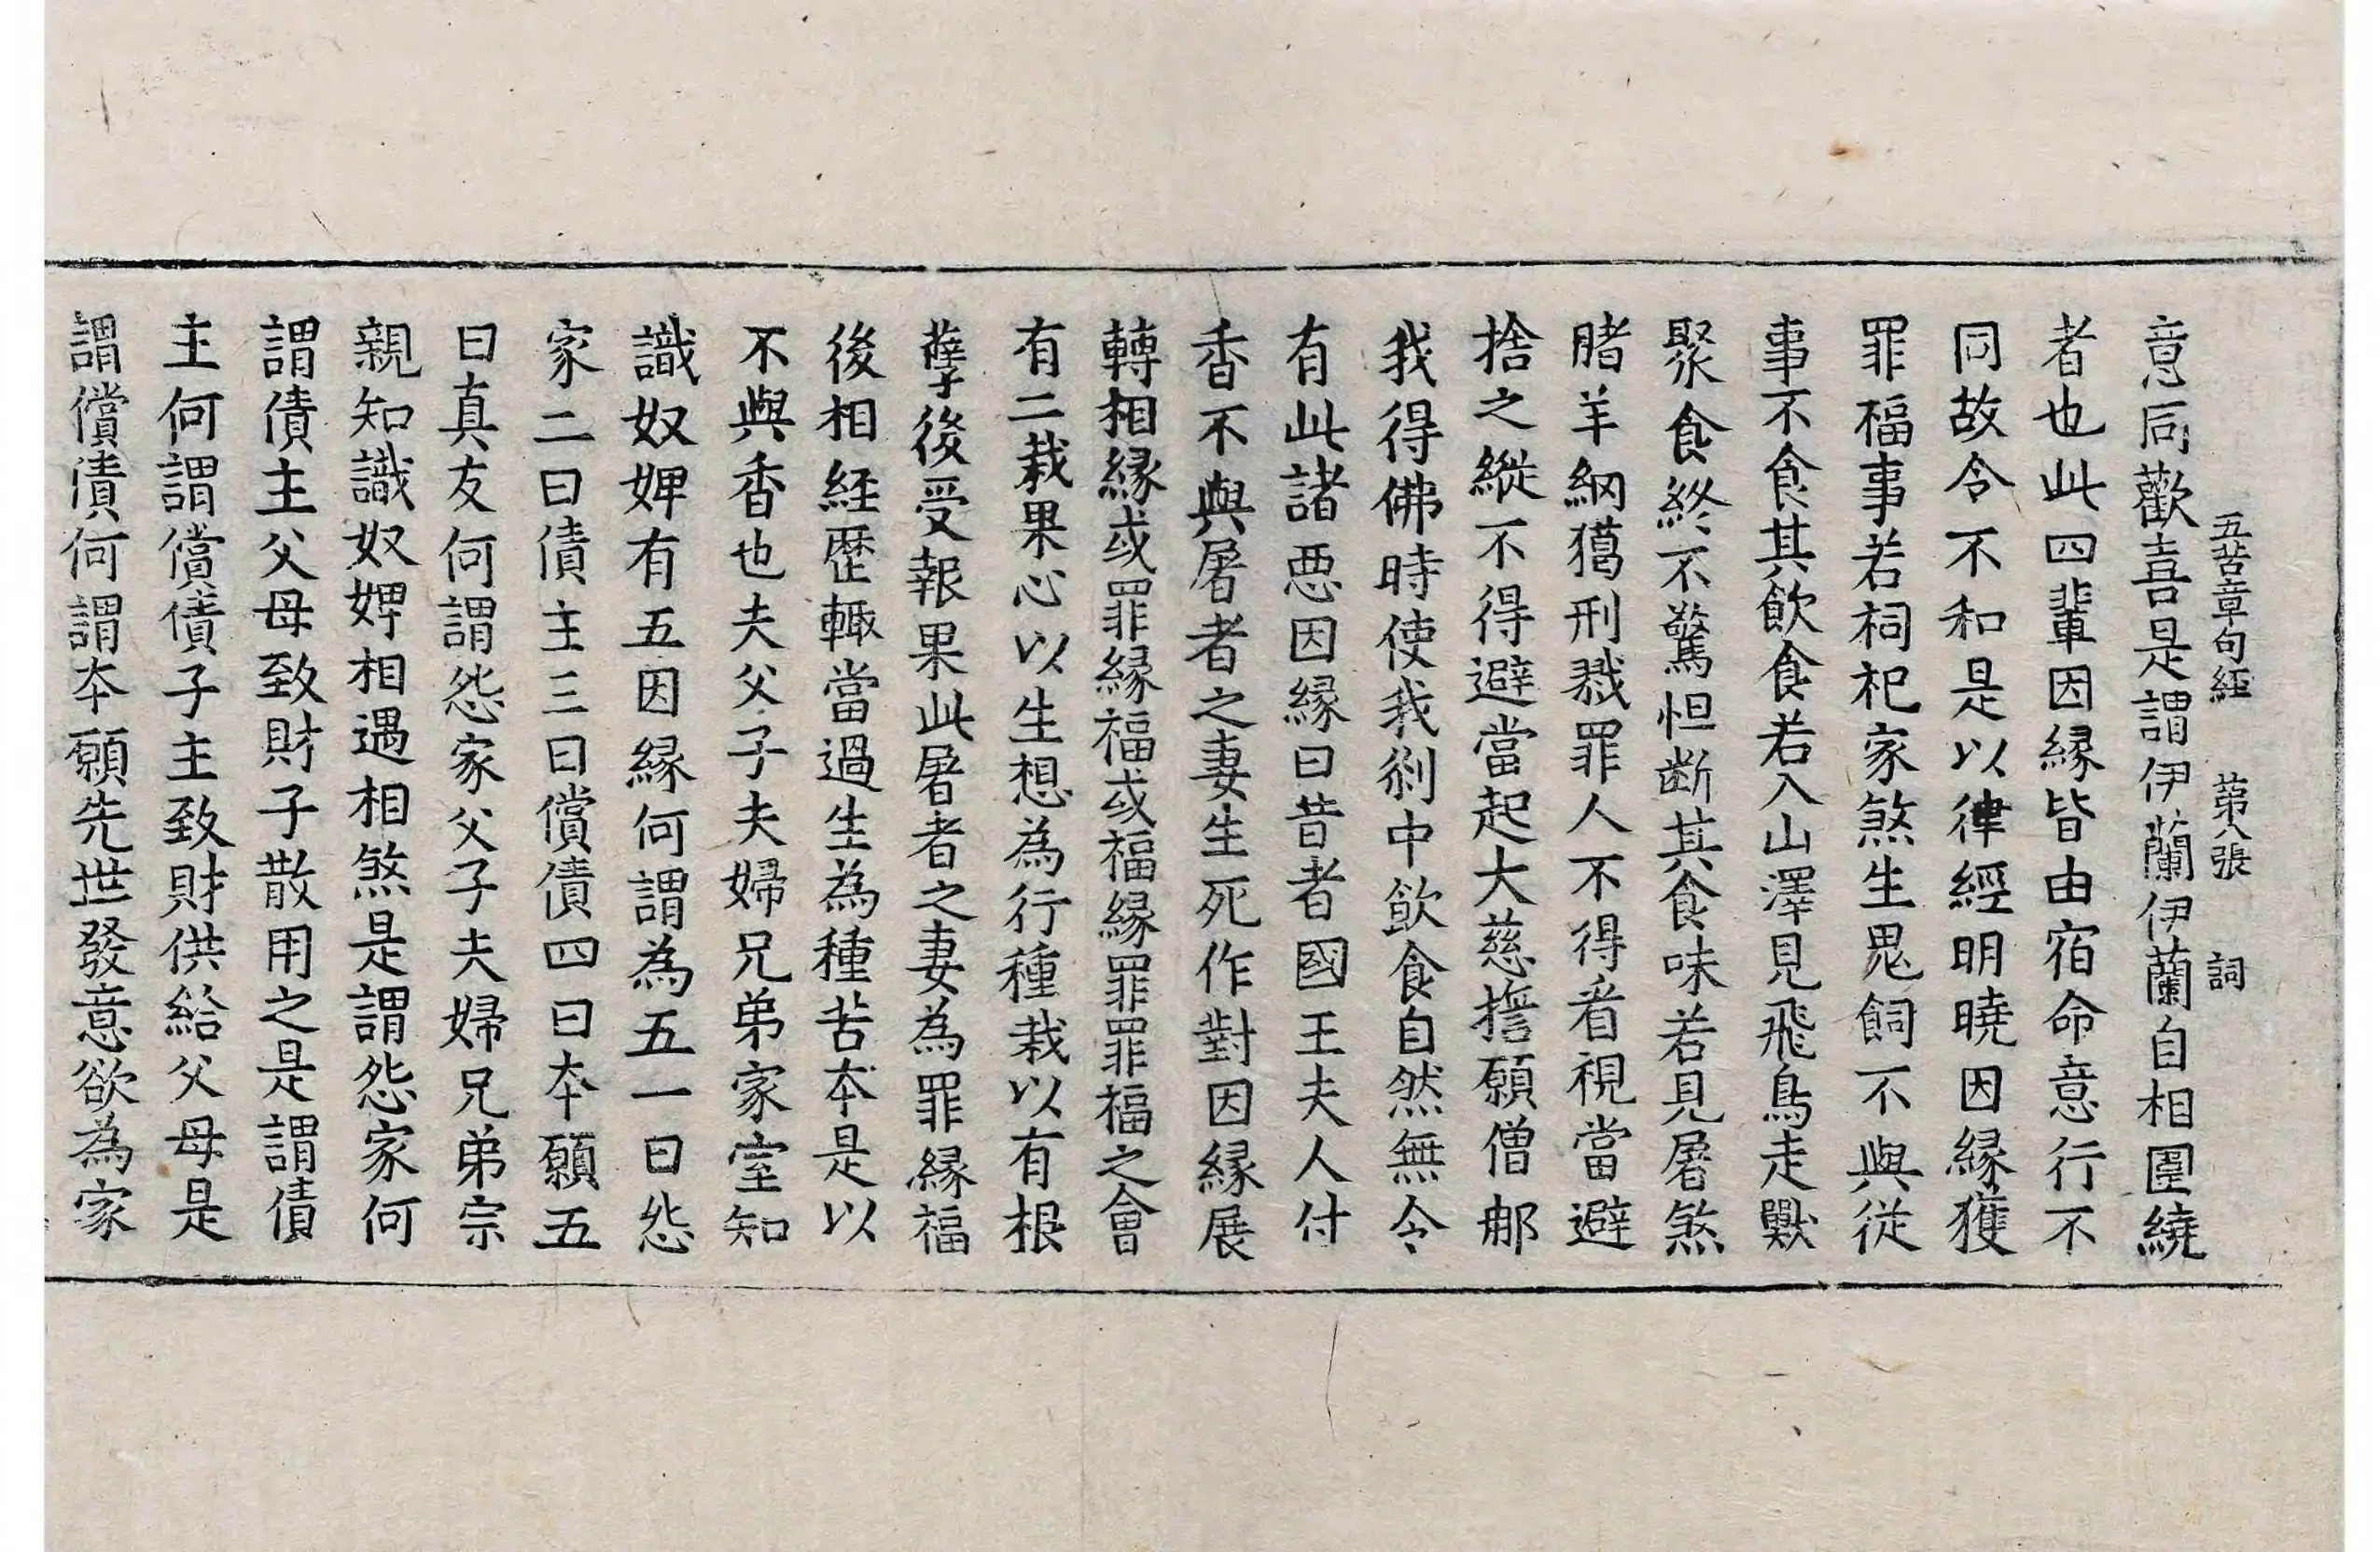 五苦章句經 苐八張 詞
意同歡喜是謂伊蘭伊蘭自相圍繞
者也此四輩因緣皆由宿命意行不
同故令不和是以律經明曉因緣獲
罪福事若祠祀家煞生鬼飼不與從
事不食其飲食若入山澤見飛鳥走獸
聚食終不驚怛断其食味若見屠煞
腤羊網獦刑戮罪人不得看視當避
捨之縱不得避當起大慈擔願僧那
我得佛時使我剎中飲食自然無令
有此諸惡因緣曰昔者國王夫人付
香不與屠者之妻生死作對因緣展
轉相緣或罪緣福或福緣罪罪福之會
有二栽果心以生想為行種栽以有根
孽後受報果此屠者之妻為罪緣福
後相経歷輙當過生為種苦本是以
不與香也夫父子夫婦兄弟家室知
識奴婢有五因緣何謂為五一曰怨
家二曰債主三曰償債四曰本願五
曰真友何謂怨家父子夫婦兄弟宗
親知識奴婢相遇相煞是謂怨家何
謂債主父母致財子散用之是謂債
主何謂償債子主致財供給父母是
謂償債何謂本願先世發意欲為家